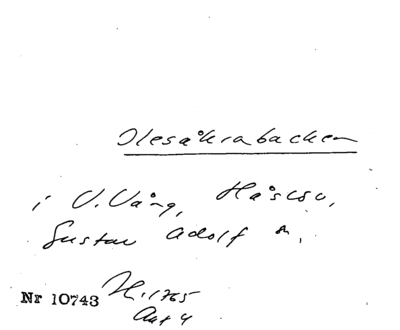 Olesåkrabacken
i V. Vång, Håslöv,
Gustav Adolf sn.
Nr 10743 H. 1765
Akt 4